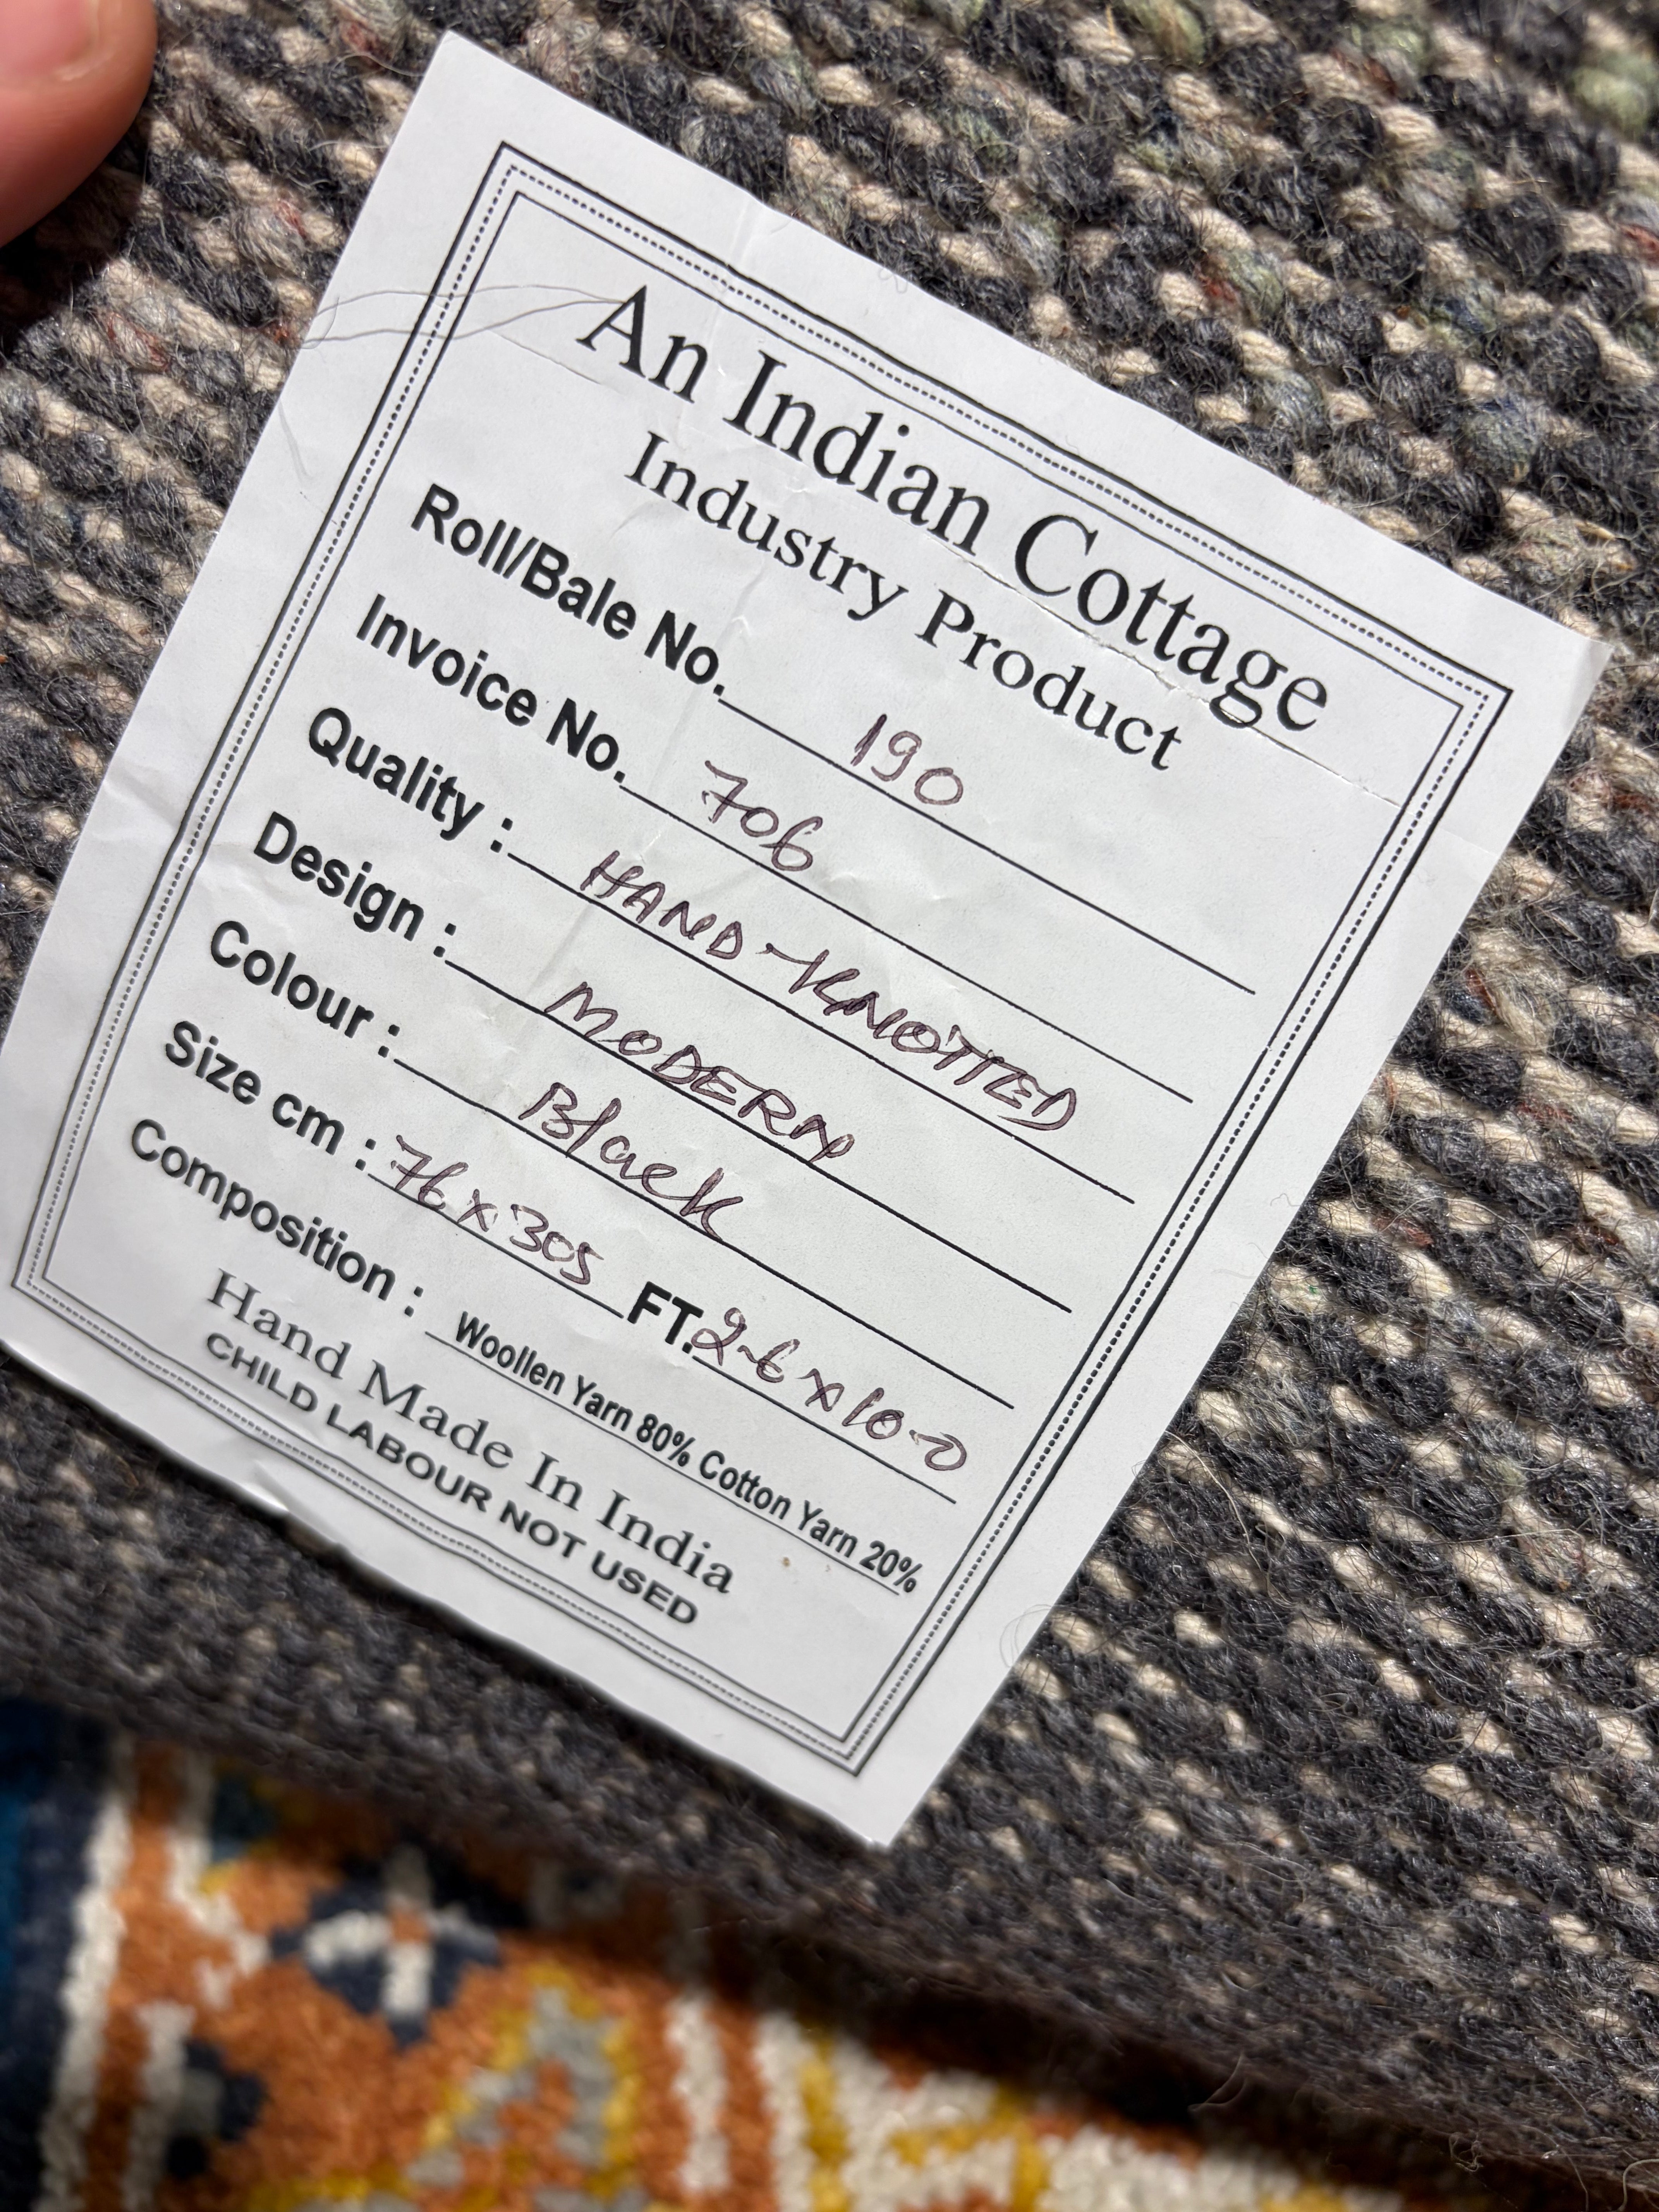 An Indian Cottage
Industry Product
Roll/Bale No. 190
Invoice No. 706
Quality : HAND-KNOTTED
Design : MODERN
Colour : Black
Size cm : 76x305 FT. 2-6x10-0
Composition : Woollen Yarn 80% Cotton Yarn 20%
Hand Made In India
CHILD LABOUR NOT USED